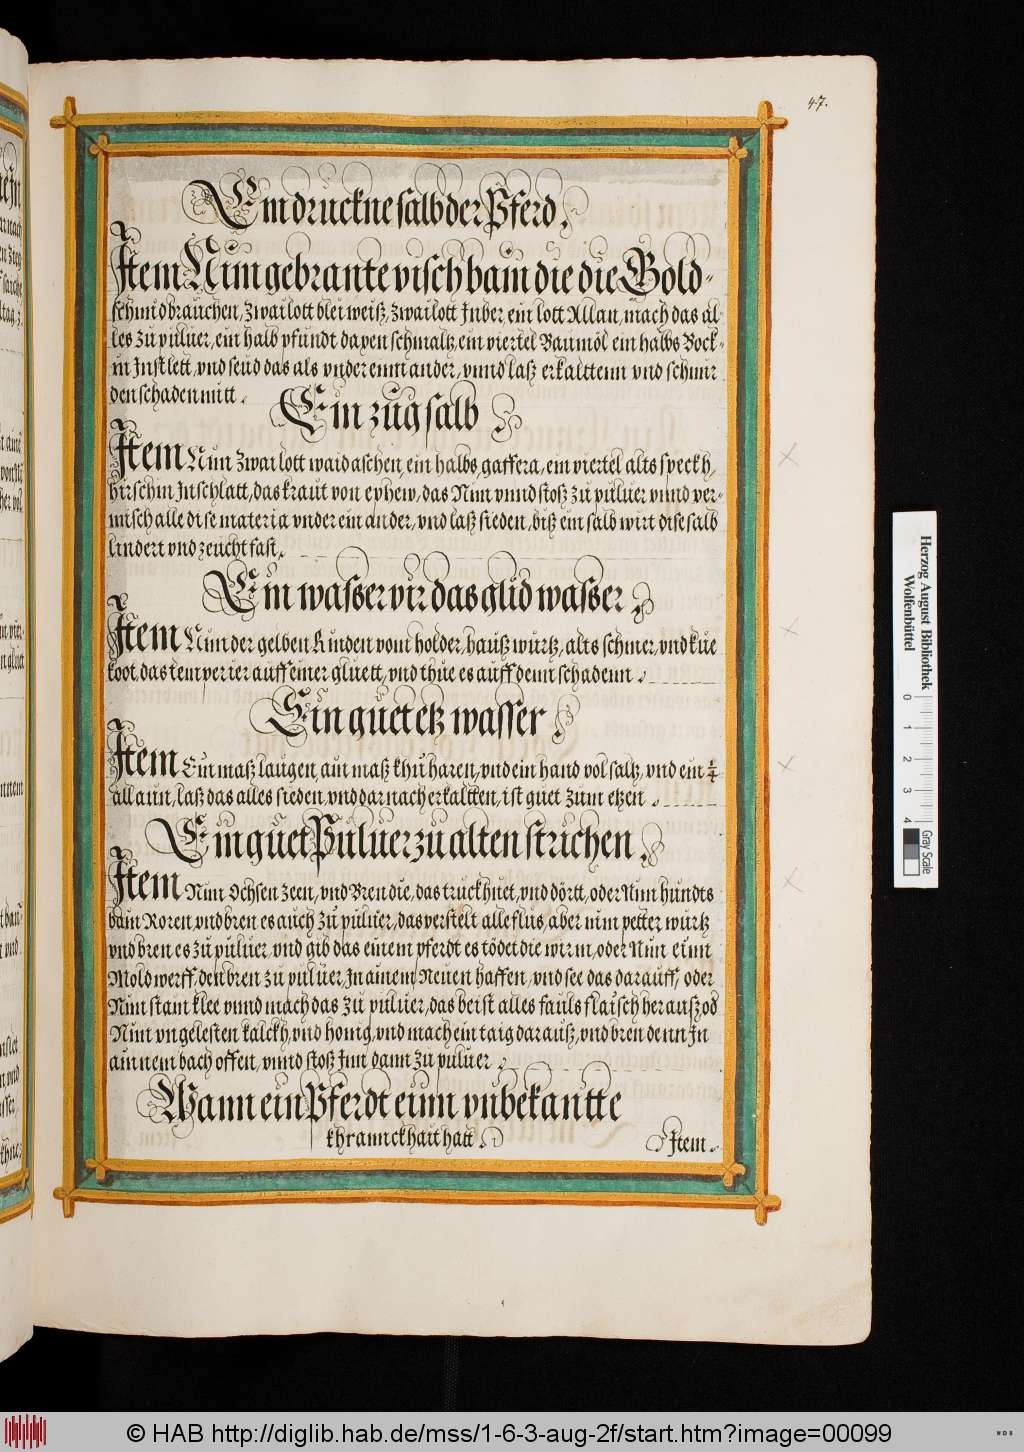 47.
Ein druckne salb der Pferd
Item Nim gebrante visch bain die die Gold-
schmid brauchen, zwai lott blei weiß, zwai lott Inber, ein lott Allan, mach das al-
les zu puluer, ein halb pfundt dapen schmaltz, ein viertel Baumöl ein halbs Bock-
in Inslett, vnd seud das als vnder einn ander, vnnd laß erkalttenn vnd schmir
den schaden mitt.
Ein zug salb
Item Nim zwai lott waid aschen, ein halbs gaffera, ein viertel alts speckh,
hirschin Inschlatt, das kraut von ephew, das Nim vnnd stoß zu puluer vnnd ver-
misch alle dise materia vnder ein ander, vnd laß sieden, biß ein salb wirt dise salb
lindert vnd zeucht fast.
Ein wasser vir das glid wasser
Item Nim der gelben Rinden vom holder, hauß wurtz, alts schmer, vnd küe
koot, das temperier auff einer gluett, vnd thue es auff denn schadenn.
Ein guet etz wasser
Item Ein maß laugen, ain maß khu haren, vnd ein hand vol saltz, vnd ein
allaun, laß das alles sieden, vnd darnach erkaltten, ist guet zum etzen.
Ein guet Puluer zu alten struchen
Item Nim Ochsen zeen, vnd Bren die, das truckhnet, vnd dörtt, oder Nim hundts
bain Roren, vnd bren es auch zu puluer, das verstelt alle flus, aber nim petter wurtz
vnd bren es zu puluer, vnd gib das einem pferdt es tödet die wirm, oder Nim einn
Moldwerff, den bren zu puluer, In ainem Neuen haffen, vnd see das darauff, oder
Nim stain klee vnnd mach das zu puluer, das beist alles fauls flaisch herauß, od
Nim vngelesten kalckh, vnd honig, vnd mach ein taig darauß, vnd bren denn In
ainnem bach offen, vnnd stoß Inn dann zu puluer.
Wann ein Pferdt einn vnbekantte
khranckhait hatt.
Item.
Herzog August Bibliothek
Wolfenbüttel
0 1 2 3 4
Gray Scale
© HAB http://diglib.hab.de/mss/1-6-3-aug-2f/start.htm?image=00099